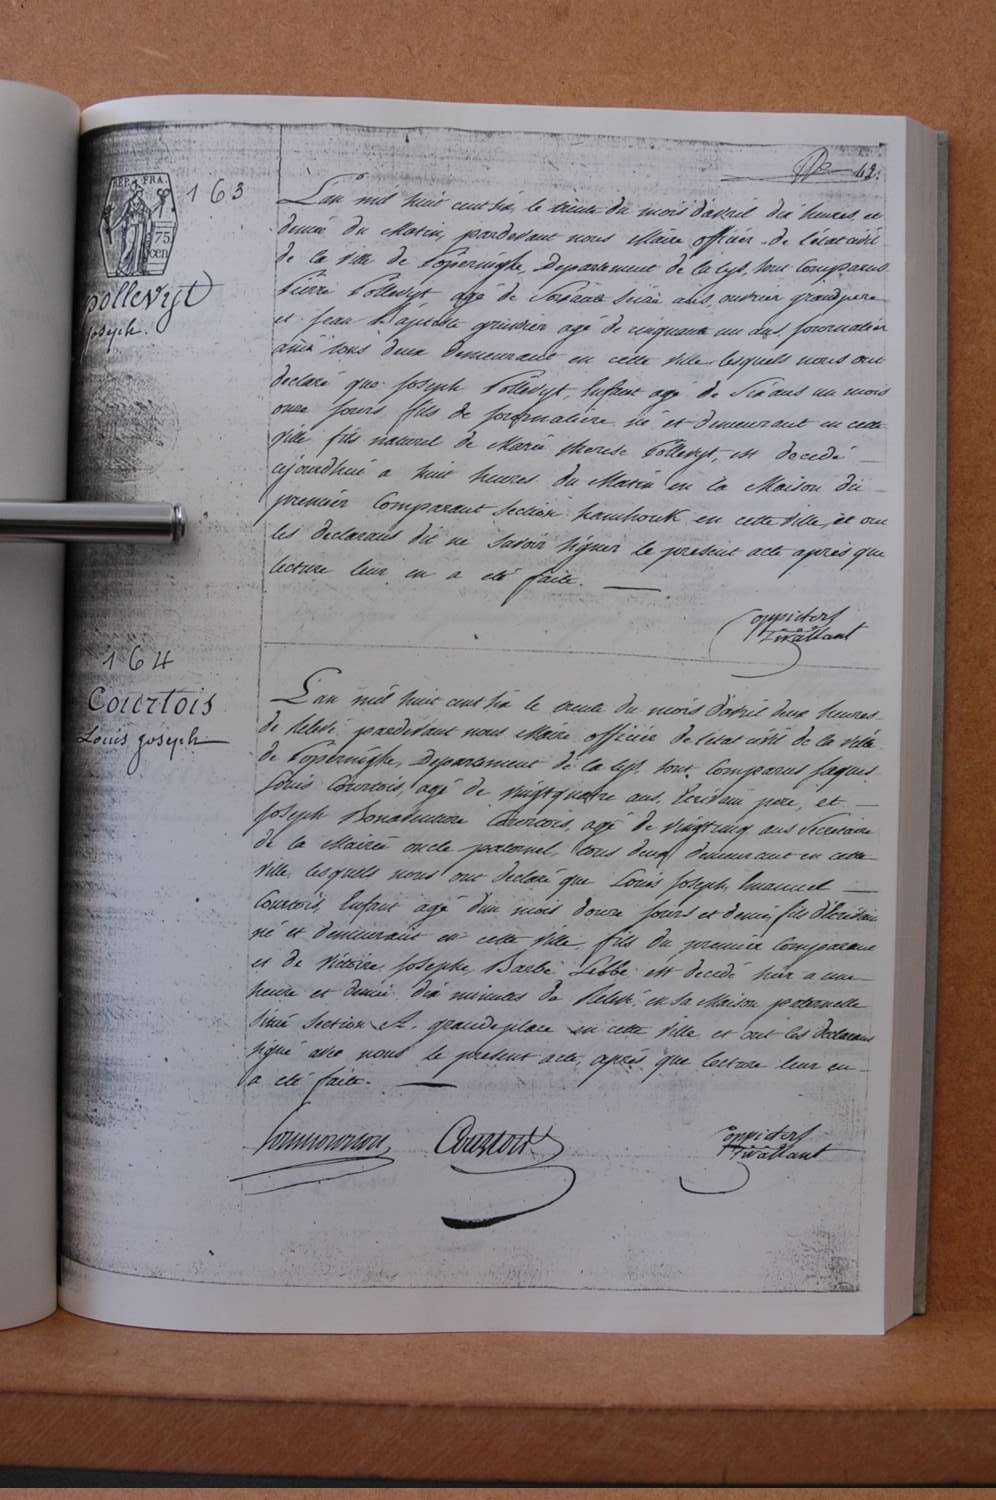 42.
REP. FRA.
75
cen
163
pollevyt
joseph.
L'an mil huit cent six, le trente du mois d'avril dix heures et
demie du Matin, pardevant nous Maire officier de l'état civil
de la ville de Poperinghe, Departement de la Lys, sont comparus
Pierre Pollevyt agé de soixante ans, ouvrier grandpere
et Jean Baptiste agé de cinquante un ans, journalier
amis tous deux demeurant en cette ville, lesquels nous ont
declaré que Joseph Pollevyt, Enfant agé de Six ans un mois
onze jours, fils de journaliere, né et demeurant en cette
ville, fils naturel de Marie therese Pollevyt, est decedé —
ajourdhui a huit heures du Matin en la Maison du
premier Comparant section hamhouk en cette ville, et ont
les declarans dit ne savoir signer le present acte après que
lecture leur en a été faite. —
164
Courtois
Louis joseph
L'an mil huit cent six le trente du mois d'avril deux heures
de Relevé, pardevant nous Maire officier de l'état civil de la ville
de Poperinghe, Departement de la Lys, sont Comparus Jaques
Louis Courtois, agé de vingtquatre ans, Ecrivain pere, et —
Joseph Bonaventure Courtois, agé de vingtcinq ans Secretaire
de la Mairie oncle paternel, tous deux demeurant en cette
ville, lesquels nous ont declaré que Louis Joseph Emanuel —
Courtois, Enfant agé d'un mois douze jours et demi, fils d'Ecrivain
né et demeurant en cette ville, fils du premier Comparant
et de Victoire Josephe Barbe Lebbe est decedé hier a une
heure et demie dix minutes de Relevé, en sa Maison paternelle
situé section A. grande place en cette ville et ont les declarans
signé avec nous le present acte, après que lecture leur en
a été faite. —
Courtois